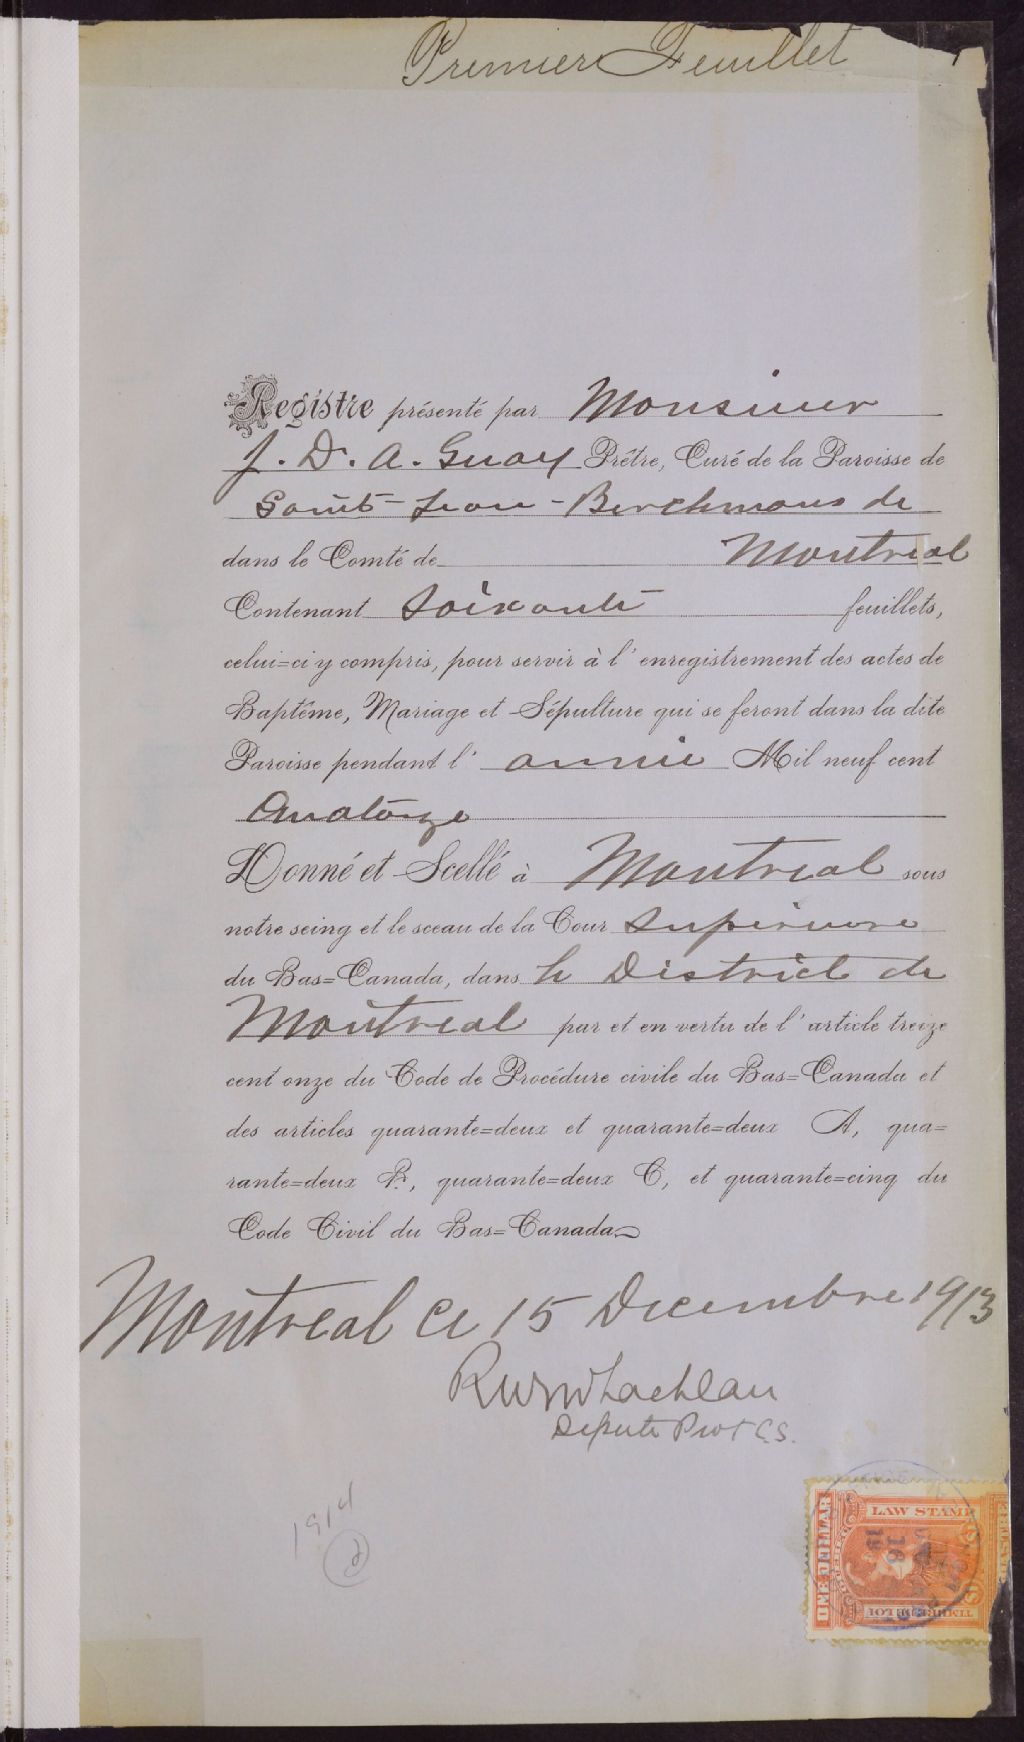 Premier Feuillet
Registre présenté par Monsieur
J. D. A. Guay Prêtre, Curé de la Paroisse de
Saint-Jean-Berchmans de
dans le Comté de Montreal
Contenant Soixante feuillets,
celui=ci y compris, pour servir à l'enregistrement des actes de
Baptême, Mariage et Sépulture qui se feront dans la dite
Paroisse pendant l'année Mil neuf cent
Quatorze
Donné et Scellé à Montreal sous
notre seing et le sceau de la Cour Superieure
du Bas=Canada, dans le District de
Montreal par et en vertu de l'article treize
cent onze du Code de Procédure civile du Bas=Canada et
des articles quarante=deux et quarante=deux A, qua=
rante=deux B, quarante=deux C, et quarante=cinq du
Code Civil du Bas=Canada
Montreal ce 15 Decembre 1913
Député Prot C.S.
1914
LAW STAMP
ONE DOLLAR
QUEBEC
TIMBRE DE LOI
16